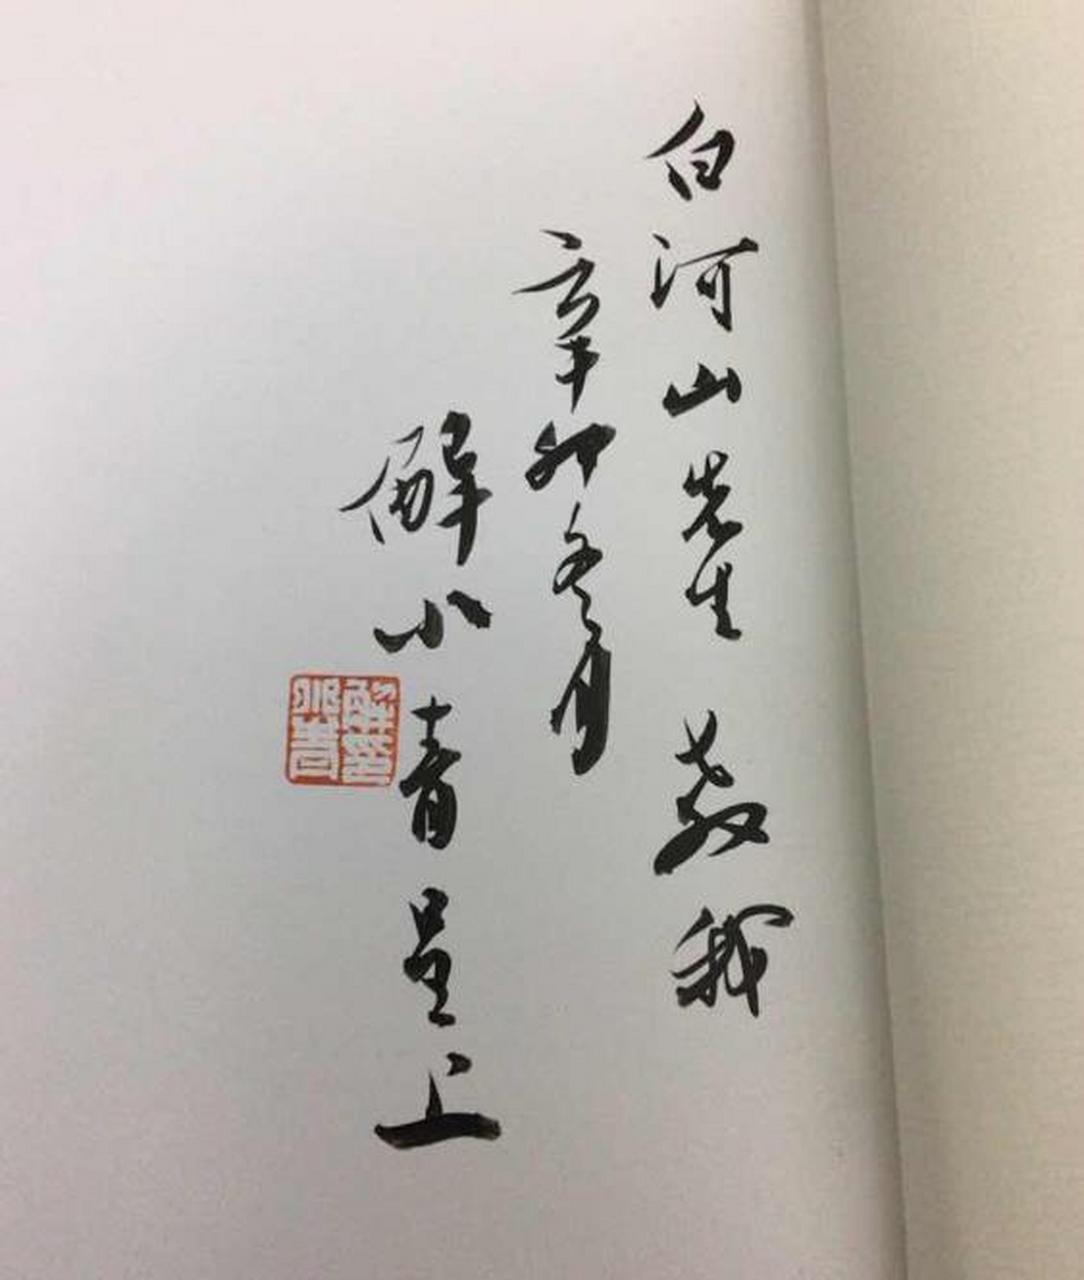 白河山先生教我
辛卯冬月
解小青呈上